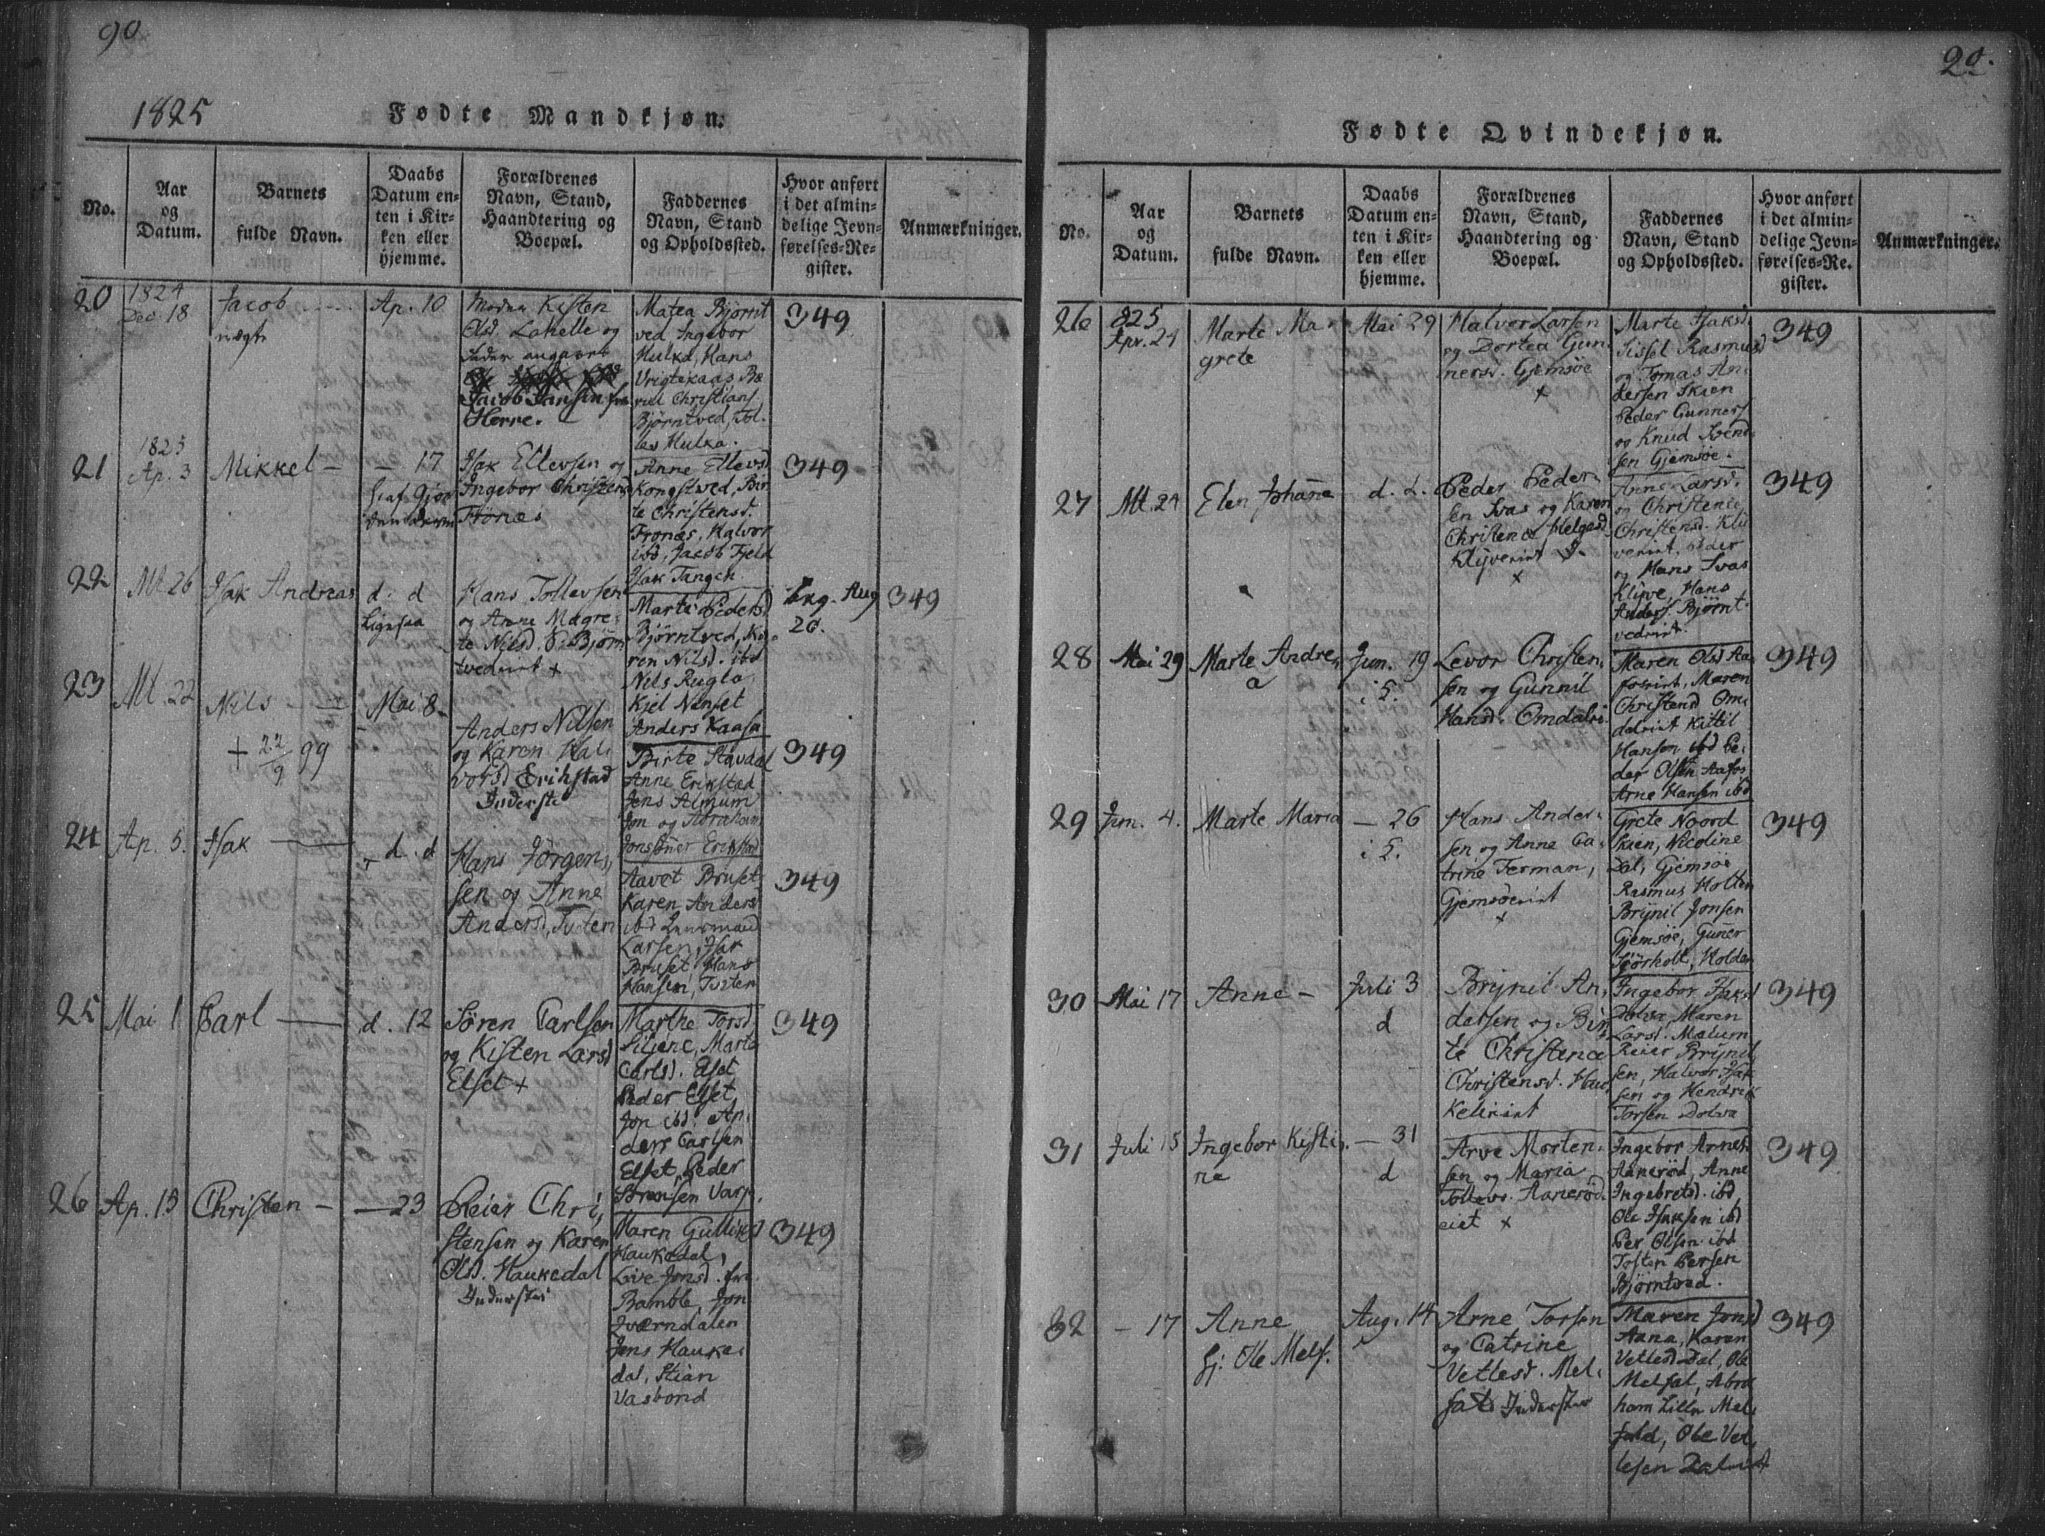 90
1825 Fødte Mandkjøn.
No.
Aar
og
Datum.
Barnets
fulde Navn.
Daabs
Datum en-
ten i Kir-
ken eller
hjemme.
Forældrenes
Navn, Stand,
Haandtering og
Boepæl.
Faddernes
Navn, Stand
og Opholdssted.
Hvor anført
i det almin-
delige Jevn-
førelses-Re-
gister.
Anmærkninger.
20
1824
Dec. 18
Jacob
uægte
Ap. 10
Moder Kisten
Olsd. Lahelle og
Fader angavet
Jacob Jansen fra
Herre.
Matea Bjørnt
ved Ingebor
Hulka, Hans
Vrigtekaas
Christians
Bjørntved, Tol-
lev Hulka.
349
21
1825
Ap. 3
Mikkel –
– 17
Isak Ellevsen og
Ingebor Christensd
Trønæs
Anne Ellevsd
Kongstved, Bir
te Christensd.
Fronæs, Halvor
ibd, Jacob Fjeld
Isak Tangen
349
22
Ml. 26
Isak Andreas
d. d
Ligesaa
Hans Tollevsen
og Anne Magre-
te Nilsd. Bjørn
tvedeiet +
Marte Pedersd
Bjørntved, Ka-
ren Nilsd. ibd
Nils Rugla
Kiel Nenset
Anders Kaasa
Aug
20.
349
23
Ml. 22
Nils
+ 22/9 99
Mai 8
Anders Nilsen
og Karen Hal-
vorsd Erikstad
Inderste
Birte Stavdal
Anne Erikstad
Jens Almum
Jon og Abraham
Jonsøner Erikstad
349
24
Ap. 5.
Isak
d. d
Hans Jörgen-
sen og Anne
Andersd, Tveten
Aavet Bruset
Karen Anders
ibd Lensmand
Larsen, Isak
Bruset, Hans
Hansen, Tveten
349
25
Mai 1
Carl
d. 12
Sören Carlsen
og Kisten Larsd
Elset +
Marthe Torsd
Siljene, Marte
Carlsd. Elset
Peder Elset,
Jon ibd. An-
ders Carlsen
Elset, Peder
Sörensen
349
26
Ap. 15
Christen –
– 23
Reier Chri-
stensen og Karen
Olsd. Haukedal
Inderster
Maren Gulliksd
Haukedal,
Live Jonsd. fra
Bamble, Jon
Jværndalen
Jens Hauke-
dal, Stian
Vasbond
349
20.
Fødte Qvindekjøn.
No.
Aar
og
Datum.
Barnets
fulde Navn.
Daabs
Datum en-
ten i Kir-
ken eller
hjemme.
Forældrenes
Navn, Stand,
Haandtering og
Boepæl.
Faddernes
Navn, Stand
og Opholdssted.
Hvor anført
i det almin-
delige Jevn-
førelses-Re-
gister.
Anmærkninger.
26
825
Apr. 24
Marte Mar
grete
Mai 29
Halvor Larsen
og Dortea Gun-
nersd. Gjemsøe
+
Marte Isaksd.
Sissel Rasmusd
og Tomas An-
dersen Skien
Peder Gunners
og Knud Svend
sen Gjemsøe.
349
27
Ml. 24
Elen Johanne
d. d.
Peder Peder-
sen Svas og Karen
Christence Helgesd
Klyveeiet
+
Anne Larsd.
og Christence
Christensd. Kly
veeiet, Peder
og Hans Svas
Klyve, Hans
Anders. Bjørnt-
vedeiet.
349
28
Mai 29
Marte Andre-
a
Jun. 19
i
Levor Christen-
sen og Gunnil
Hansd. Omdals
Maren Olsd Aa-
foseiet, Maren
Christensd Om-
daleiet Kittil
Hansen ibd Pe-
der Olsen Aafos
Arne Hansen ibd
349
29
Jun. 4.
Marte Maria
– 26
i
Hans Ander-
sen og Anne Ca-
trine Terman,
Gjemsøeeiet
+
Grete Noord
Skien, Nicoline
Dal, Gjemsøe
Rasmus Holten
Brynil Jonsen
Gjemsøe, Guner
Holden
349
30
Mai 17
Anne –
Juli 3
d
Brynil An-
dersen og Bir-
te Christence
Christensd. Hau-
keliet
Ingebor Isaksd
Dolva, Maren
Larsd. Malum
Reier Brynil
sen, Halvor Isak
sen og Hendrik
Torsen Dolva
349
31
Juli 15
Ingebor Kisti-
ne
– 31
d
Arve Morten-
sen og Maria
Tollevs. Aanerød
eiet +
Ingebor Arnes
Aanerød, Anne
Ingebretsd. ibd,
Ole Isaksen ibd
Per Olsen ibd
Tosten Persen
Bjørntved.
349
32
– 17
Anne
Aug. 14
Arne Torsen
og Catrine
Vetlesd. Mel-
Inderster
Maren Jonsd
Aana, Karen
Vetlesd Dal, Ole
Melfal, Abra
ham Lille Mel-
Ole Vet-
lesen
349